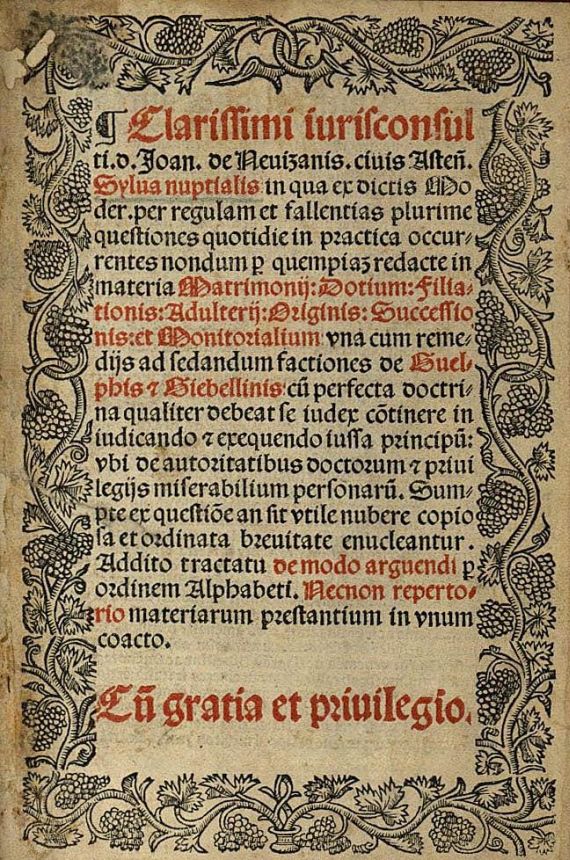 ¶ Clarissimi iurisconsul
ti. d. Joan. de Neuizanis. ciuis Asteñ.
Sylua nuptialis in qua ex dictis Mo
der. per regulam et fallentias plurime
questiones quotidie in practica occur-
rentes nondum ꝑ quempiaꝫ redacte in
materia Matrimonij: Dotium: Filia-
tionis: Adulterij: Originis: Successio
nis: et Monitorialium vna cum reme-
dijs ad sedandum factiones de Guel-
phis ⁊ Giebellinis: cũ perfecta doctri-
na qualiter debeat se iudex cõtinere in
iudicando ⁊ exequendo iussa principũ:
vbi de autoritatibus doctorum ⁊ priui
legijs miserabilium personarũ. Sum-
pte ex questiõe an sit vtile nubere copio
sa et ordinata breuitate enucleantur.
Addito tractatu de modo arguendi ꝑ
ordinem Alphabeti. Necnon reperto-
rio materiarum prestantium in vnum
coacto.
Cũ gratia et priuilegio.